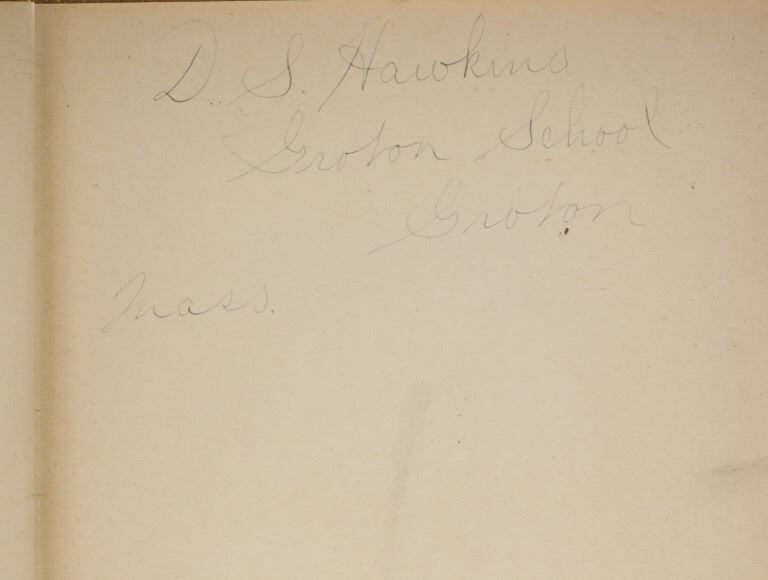 D. S. Hawkins
Groton School
Groton
Mass.